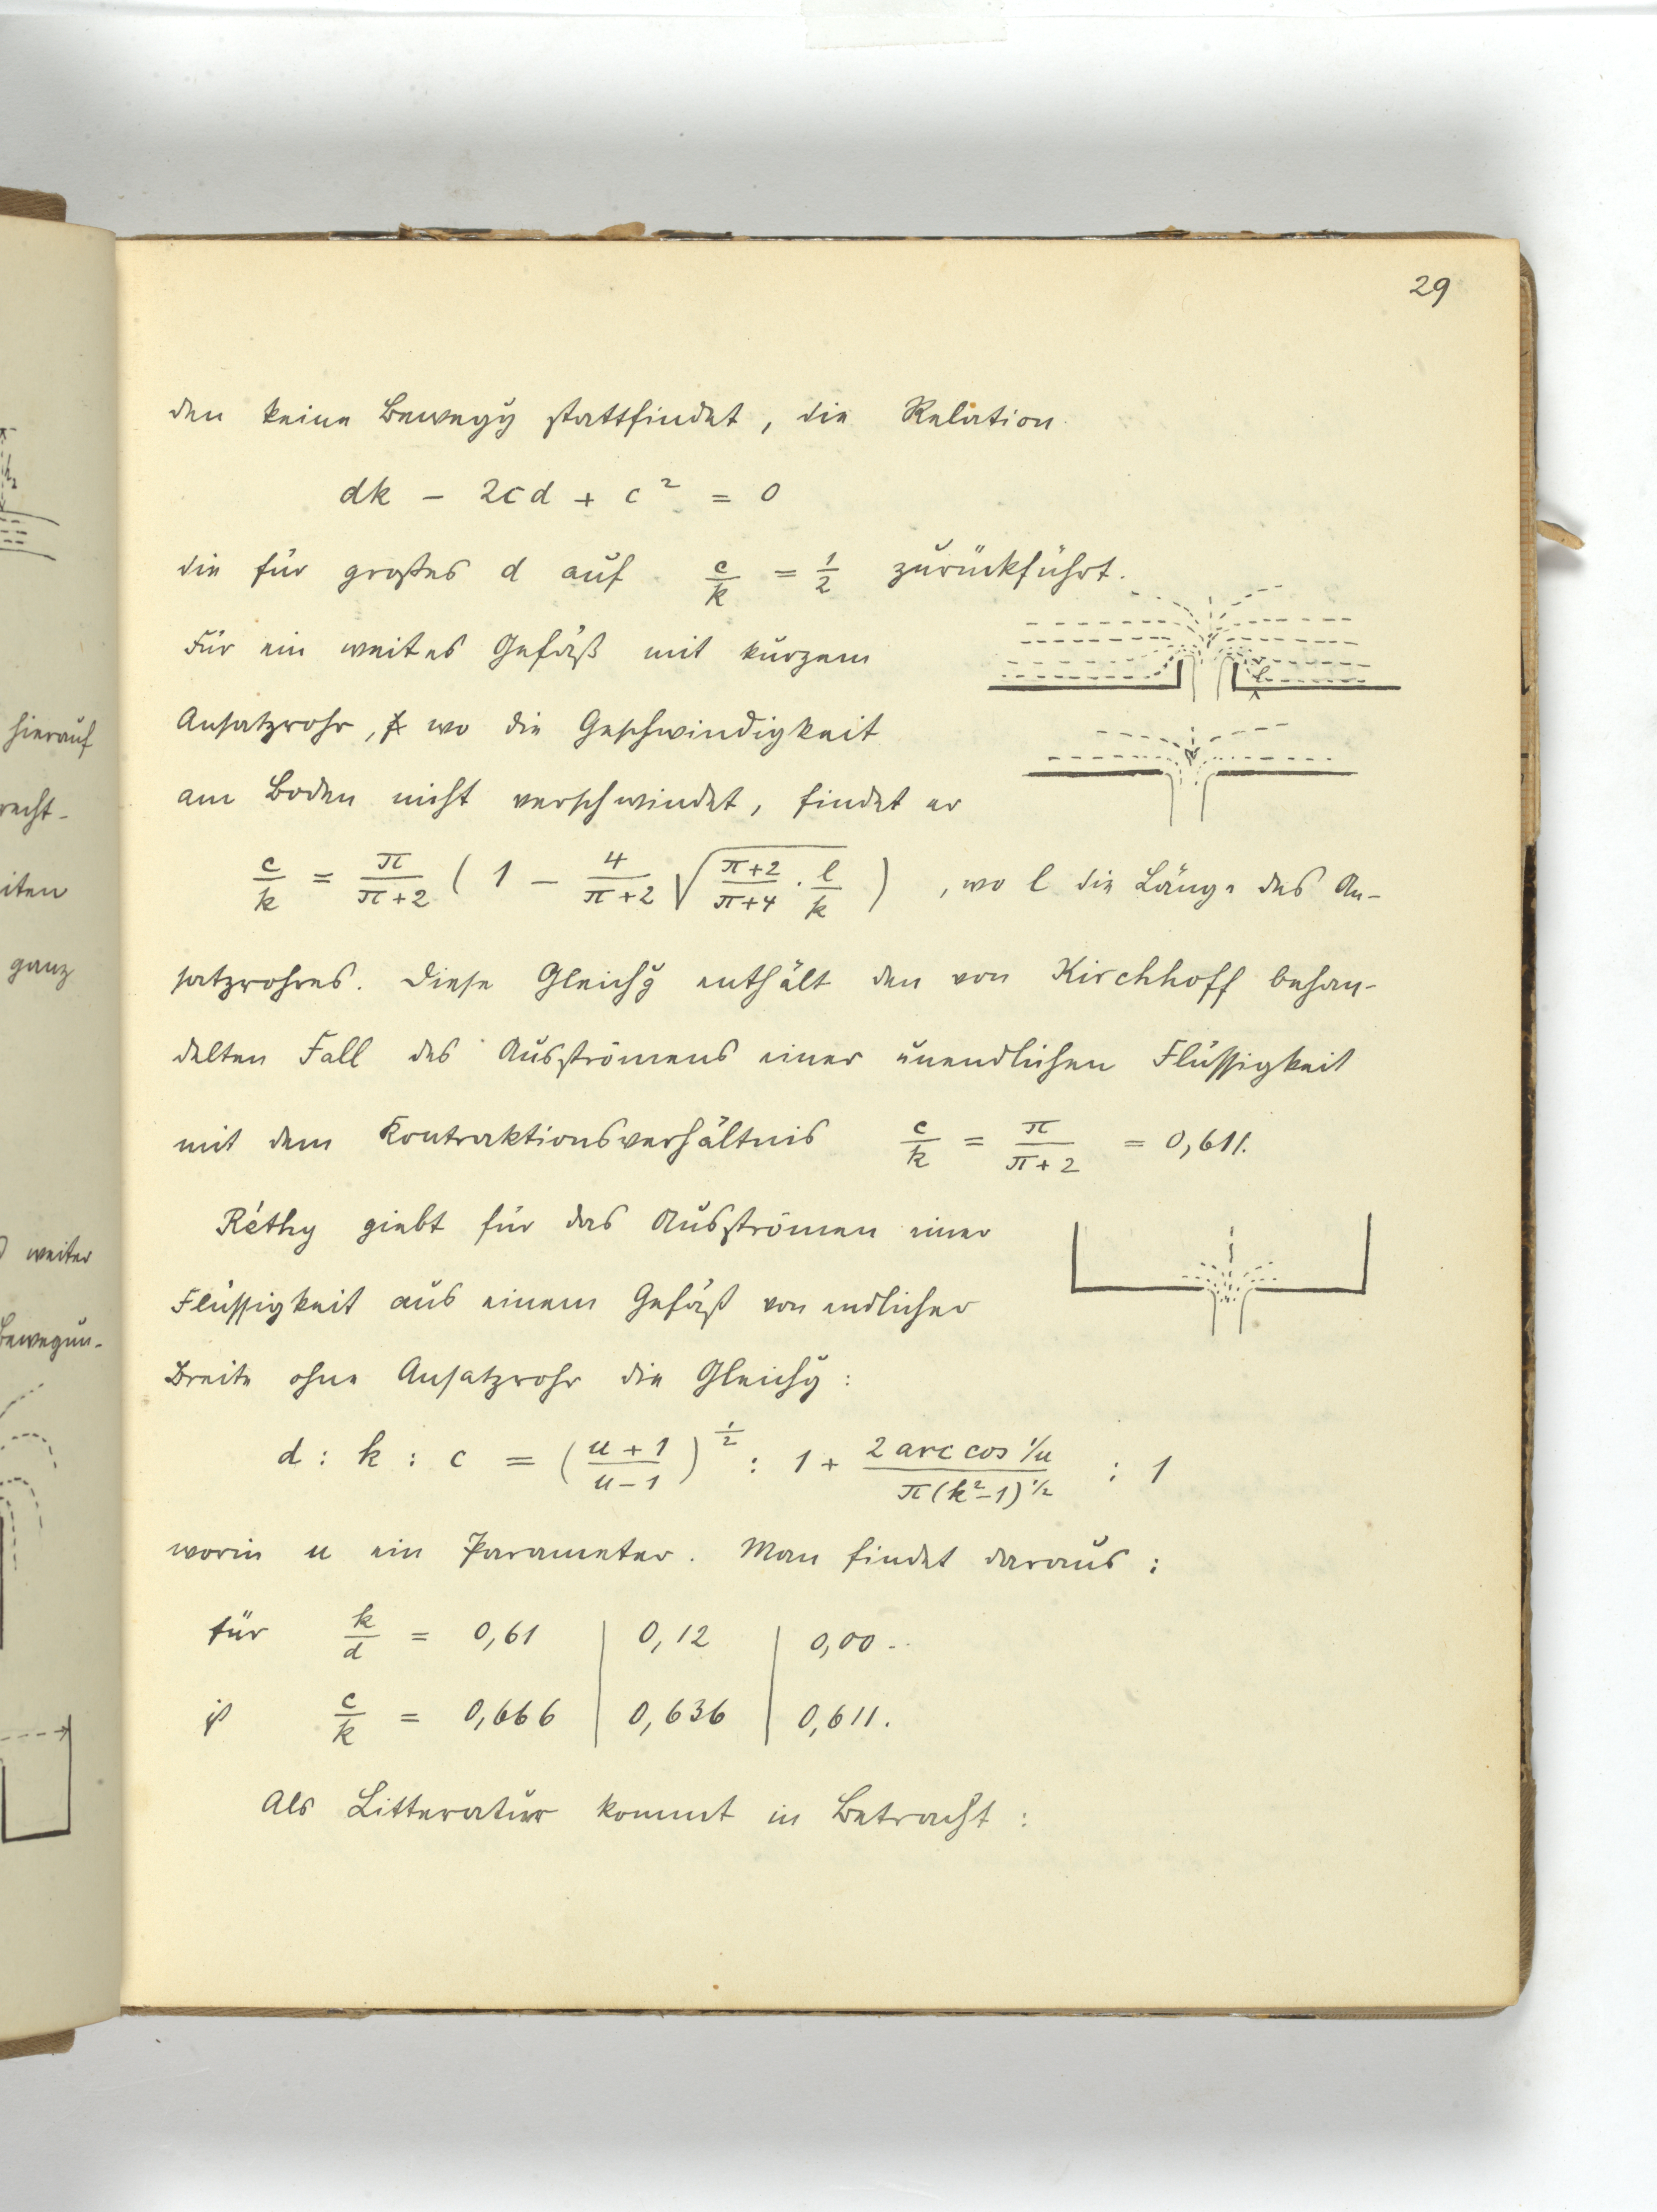 29
den keine Bewegg stattfindet, die Relation
dk − 2cd + c² = 0
die für großes d auf c/k = 1/2 zurückführt.
Für ein weites Gefäß mit kurzem
Ansatzrohr, wo die Geschwindigkeit
am Boden nicht verschwindet, findet er
c/k = π/(π+2) ( 1 − 4/(π+2) √(π+2)/(π+4) · l/k ) , wo l die Länge des An-
satzrohres. Diese Gleichg enthält den von Kirchhoff behan-
delten Fall des Ausströmens einer unendlichen Flüssigkeit
mit dem Kontraktionsverhältnis c/k = π/(π+2) = 0,611.
Réthy giebt für das Ausströmen einer
Flüssigkeit aus einem Gefäß von endlicher
Breite ohne Ansatzrohr die Gleichg:
d : k : c = ((u+1)/(u−1))^1/2 : 1 + (2 arc cos 1/u)/(π(k²−1)^1/2) : 1
worin u ein Parameter. Man findet daraus :
für k/d = 0,61 | 0,12 | 0,00..
ist c/k = 0,666 | 0,636 | 0,611.
Als Litteratur kommt in Betracht :
l
hierauf
recht-
iten
ganz
weiter
Bewegun-